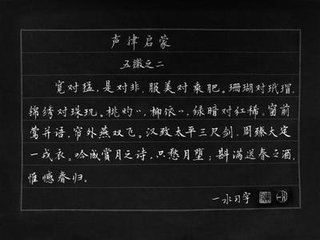 声律启蒙
五微之二
宽对猛，是对非，服美对乘肥。珊瑚对玳瑁，
锦绣对珠玑。桃灼灼，柳依依，绿暗对红稀。窗前
莺并语，帘外燕双飞。汉致太平三尺剑，周臻大定
一戎衣。吟成赏月之诗，只愁月堕；斟满送春之酒，
惟憾春归。
一水习字